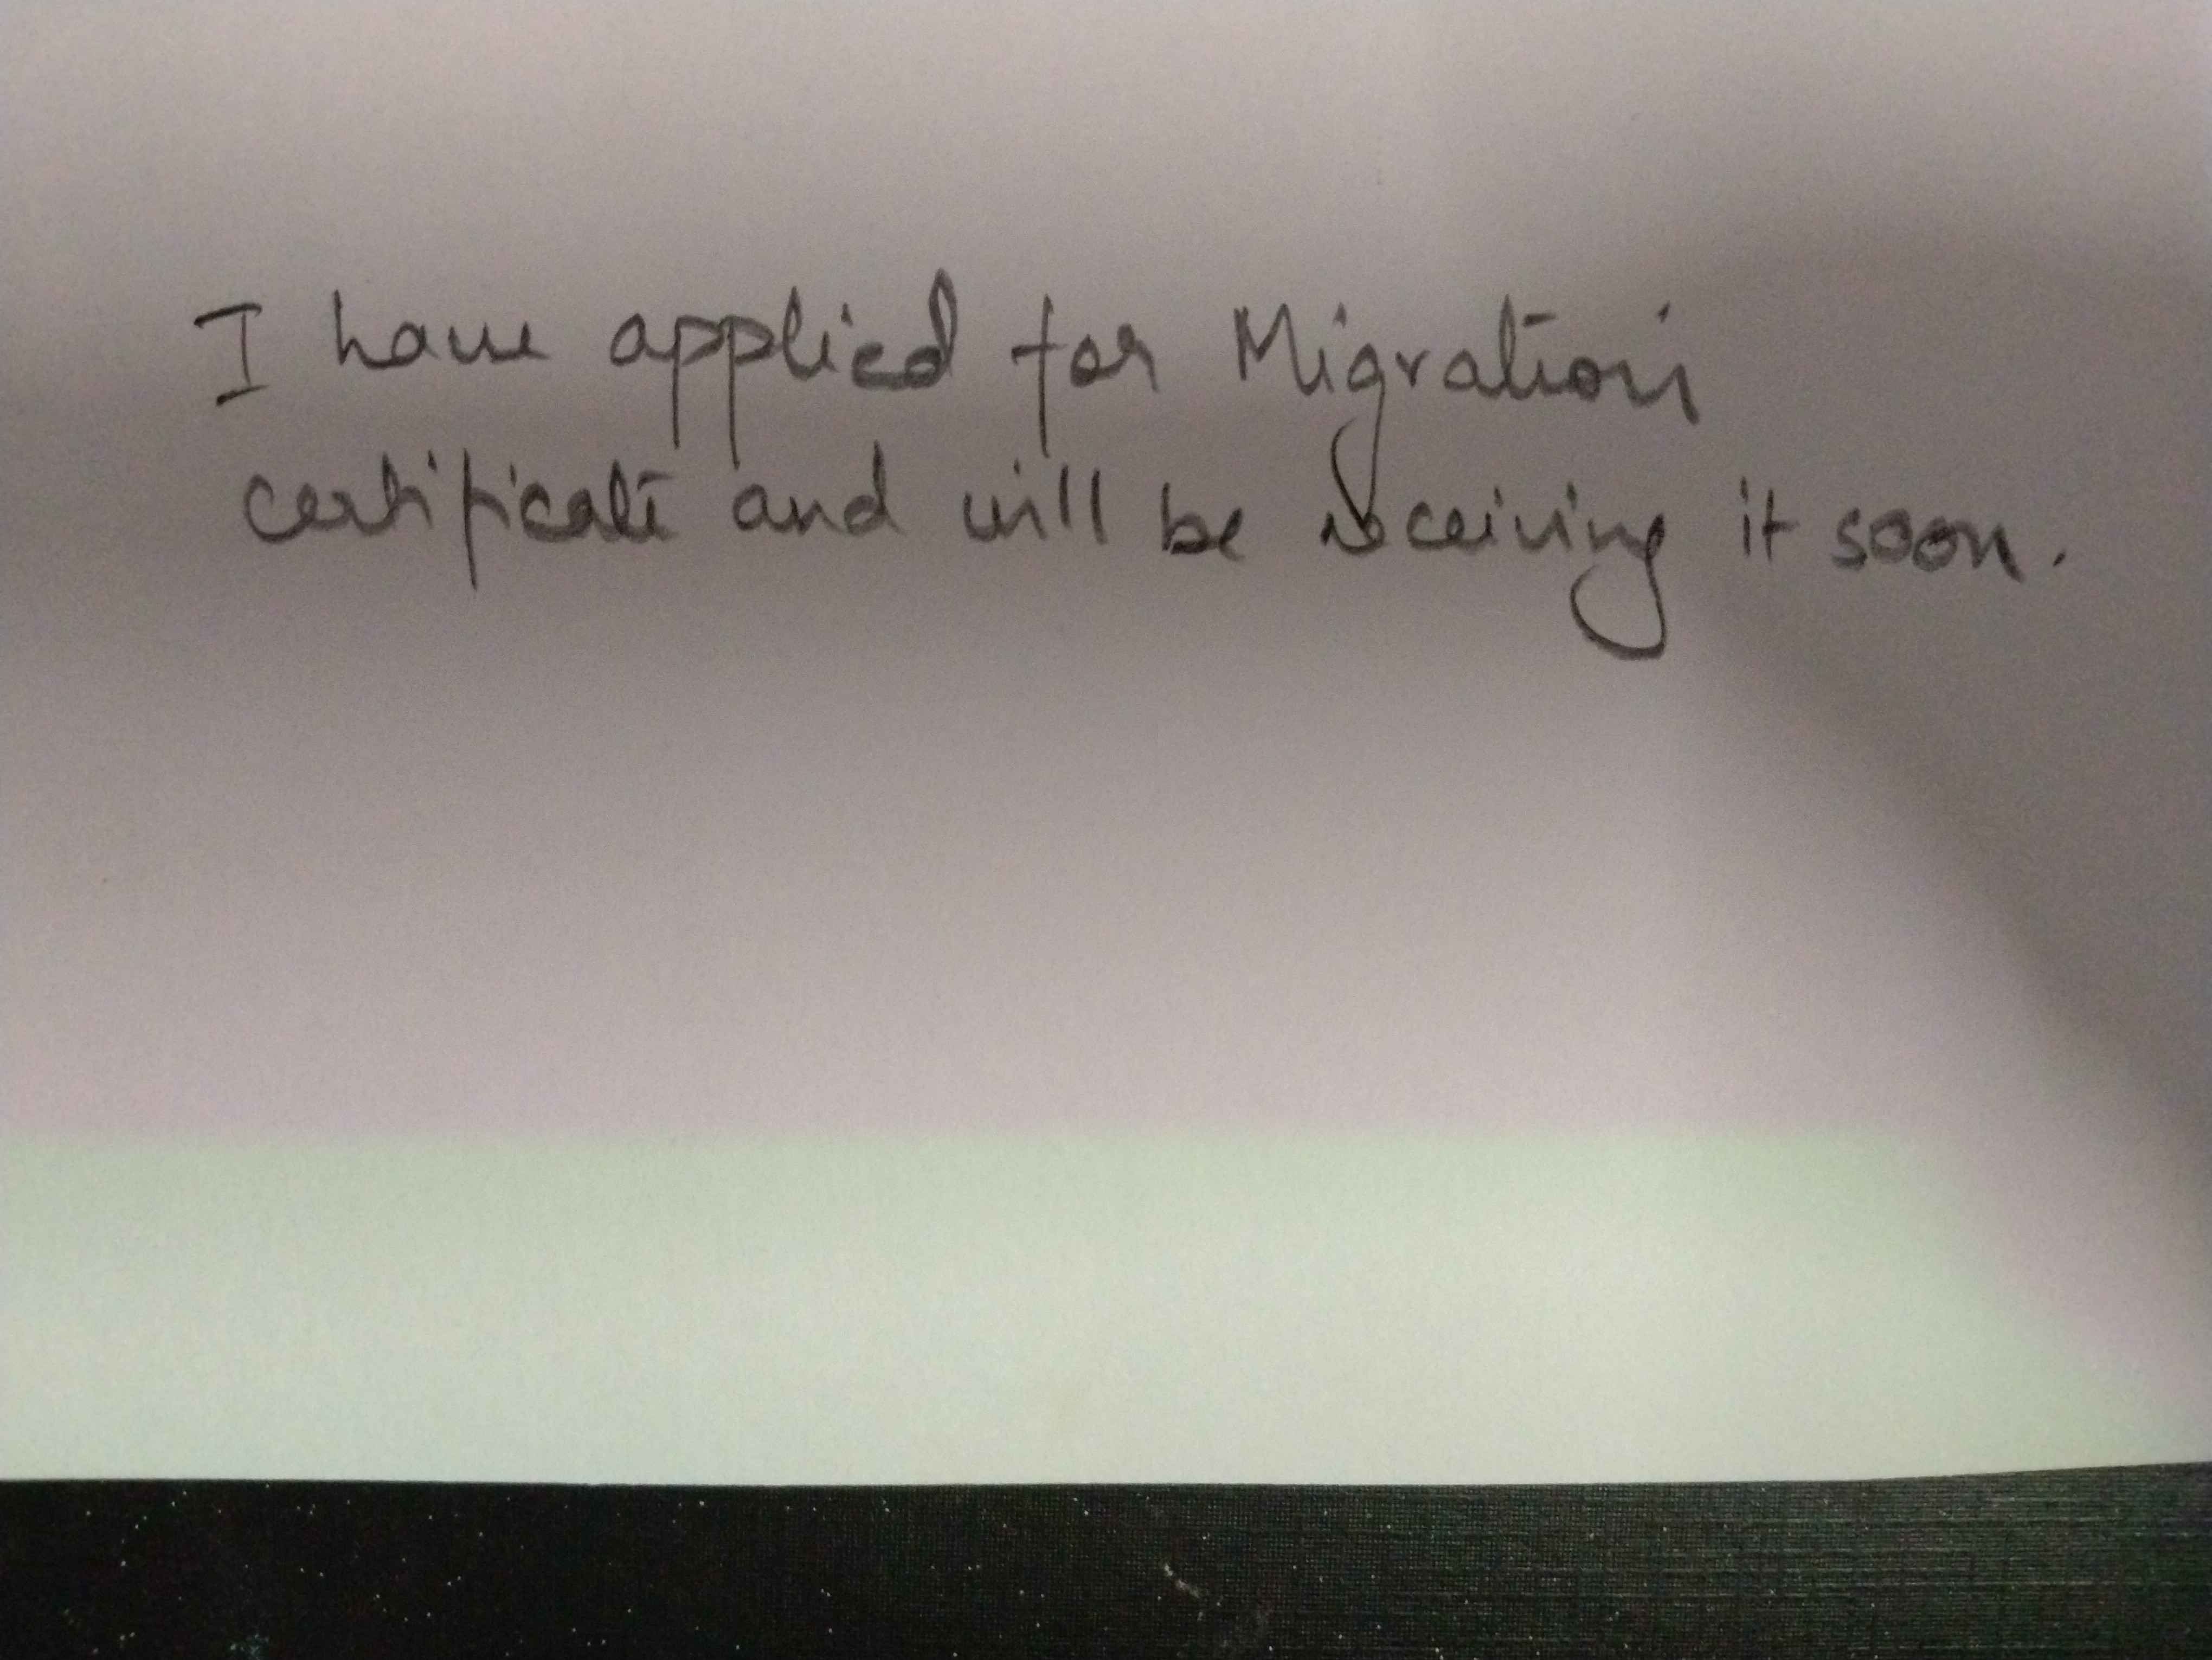 I have applied for Migration
certificate and will be receiving it soon.